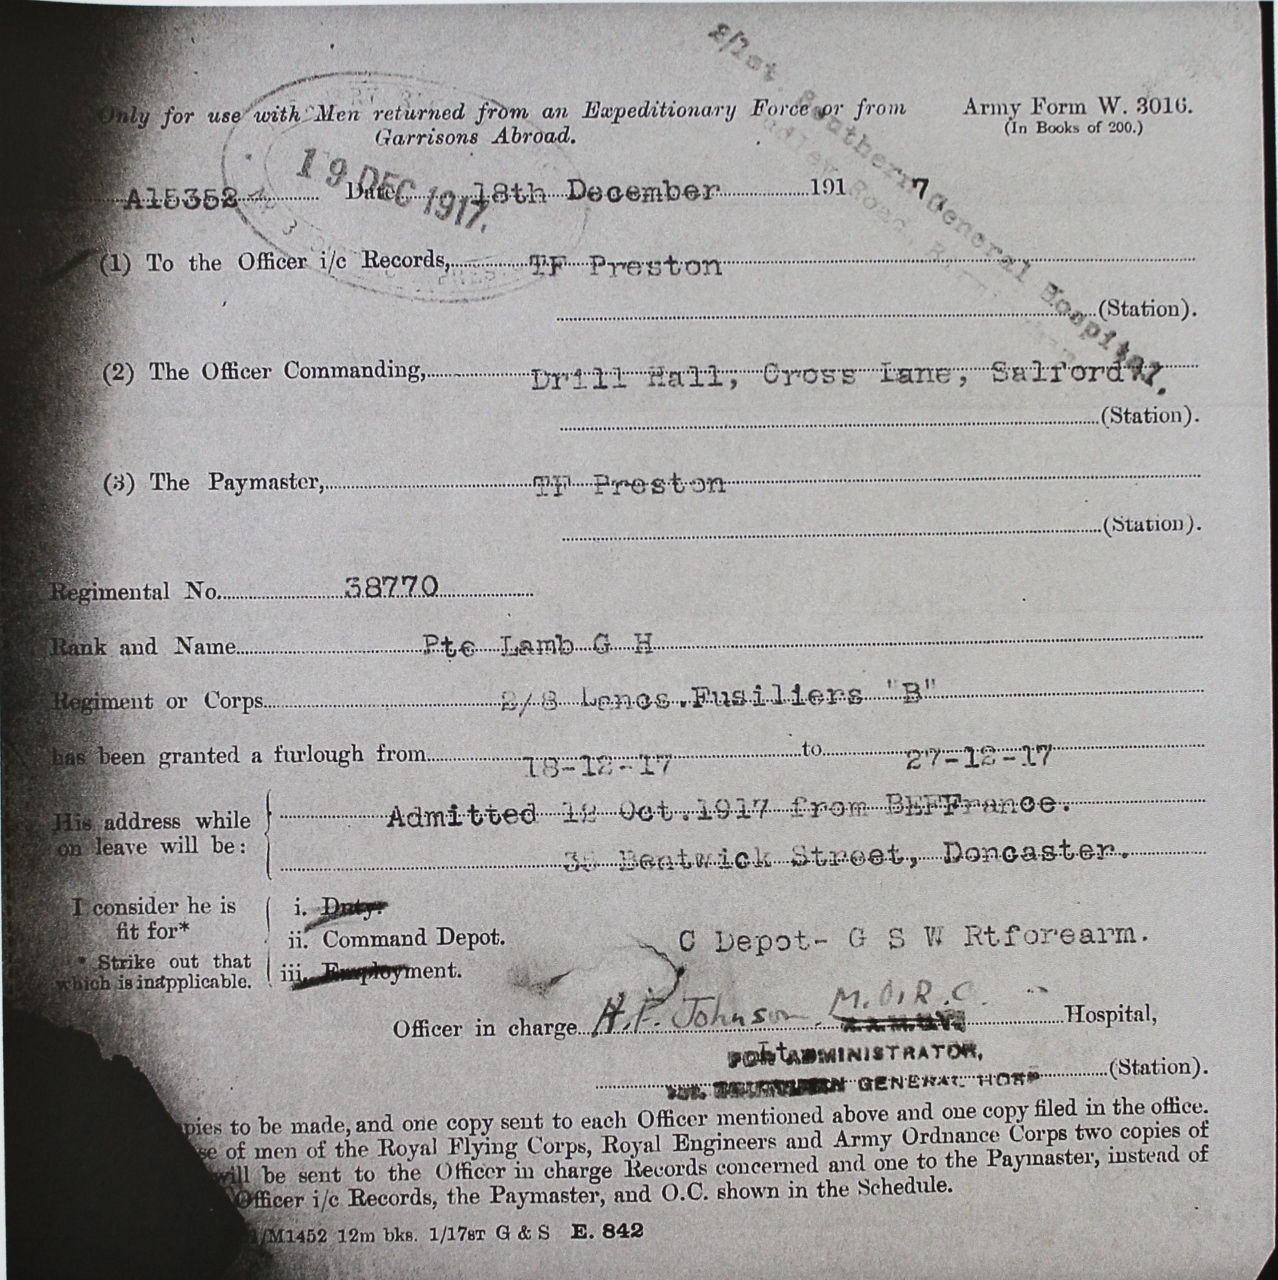 2/1st. Southern General Hospital,
Only for use with Men returned from an Expeditionary Force or from
Garrisons Abroad.
Army Form W. 3016.
(In Books of 200.)
19 DEC 1917.
A15352 Date 18th December 1917
(1) To the Officer i/c Records, TF Preston
(Station).
(2) The Officer Commanding, Drill Hall, Cross Lane, Salford
(Station).
(3) The Paymaster, TF Preston
(Station).
Regimental No. 38770
Rank and Name Pte Lamb G H
Regiment or Corps 2/8 Lancs.Fusiliers "B"
has been granted a furlough from 18-12-17 to 27-12-17
His address while
on leave will be:
Admitted Oct.1917 from BEFFrance.
Street, Doncaster.
I consider he is
fit for*
* Strike out that
which is inapplicable.
i. Duty.
ii. Command Depot.
iii. Employment.
C Depot- G S W Rtforearm.
Officer in charge H.F. Johnson. M.O.R.C. Hospital,
ADMINISTRATOR,
GENERAL HOSP (Station).
pies to be made, and one copy sent to each Officer mentioned above and one copy filed in the office.
se of men of the Royal Flying Corps, Royal Engineers and Army Ordnance Corps two copies of
will be sent to the Officer in charge Records concerned and one to the Paymaster, instead of
Officer i/c Records, the Paymaster, and O.C. shown in the Schedule.
/M1452 12m bks. 1/17ST G & S E. 842